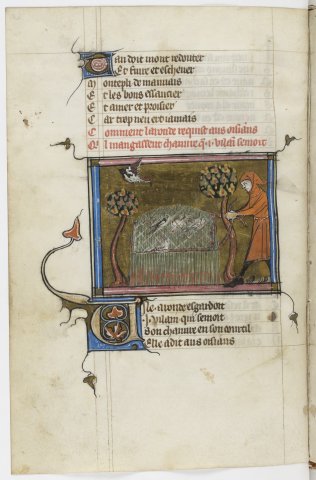 Can doit mont redouter
Et fuir et eschever
 de mauvais
Et les bons essaucier
Et amer et proisier
Car trop n'en est iamais
Comment laronde requist aus oisians
Quil mangassent chanvre q. i. vilain semoit
Ele. aronde esgardoit
. i. vilain qui semoit
Son chanvre en son courtil
Elle a dit aus oisians